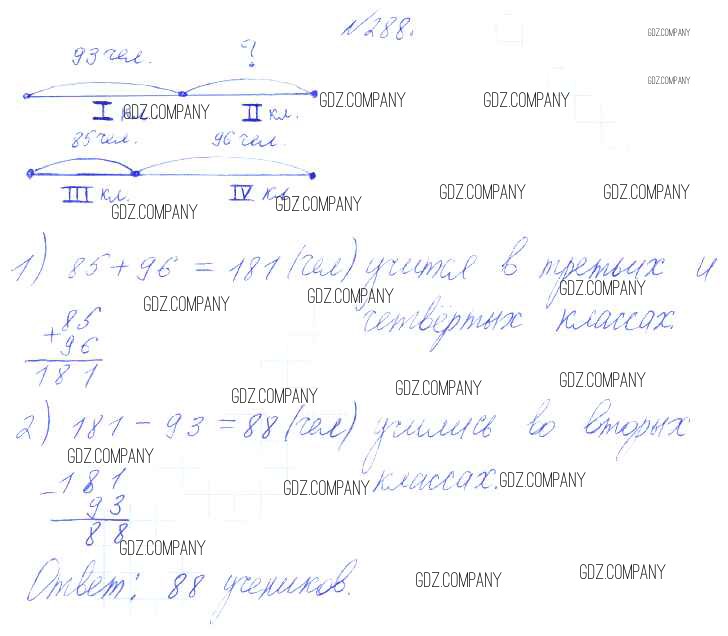 №288.
GDZ.COMPANY
93 чел. ?
GDZ.COMPANY
I кл. GDZ.COMPANY II кл. GDZ.COMPANY GDZ.COMPANY
85 чел. 96 чел.
III кл. IV кл. GDZ.COMPANY GDZ.COMPANY
GDZ.COMPANY GDZ.COMPANY
1) 85 + 96 = 181 (чел) учится в третьих и
GDZ.COMPANY GDZ.COMPANY GDZ.COMPANY
+85 четвёртых классах.
96
181
GDZ.COMPANY GDZ.COMPANY GDZ.COMPANY
2) 181 - 93 = 88 (чел) учились во вторых
GDZ.COMPANY
-181 GDZ.COMPANY классах. GDZ.COMPANY
93
88
GDZ.COMPANY
Ответ: 88 учеников. GDZ.COMPANY GDZ.COMPANY